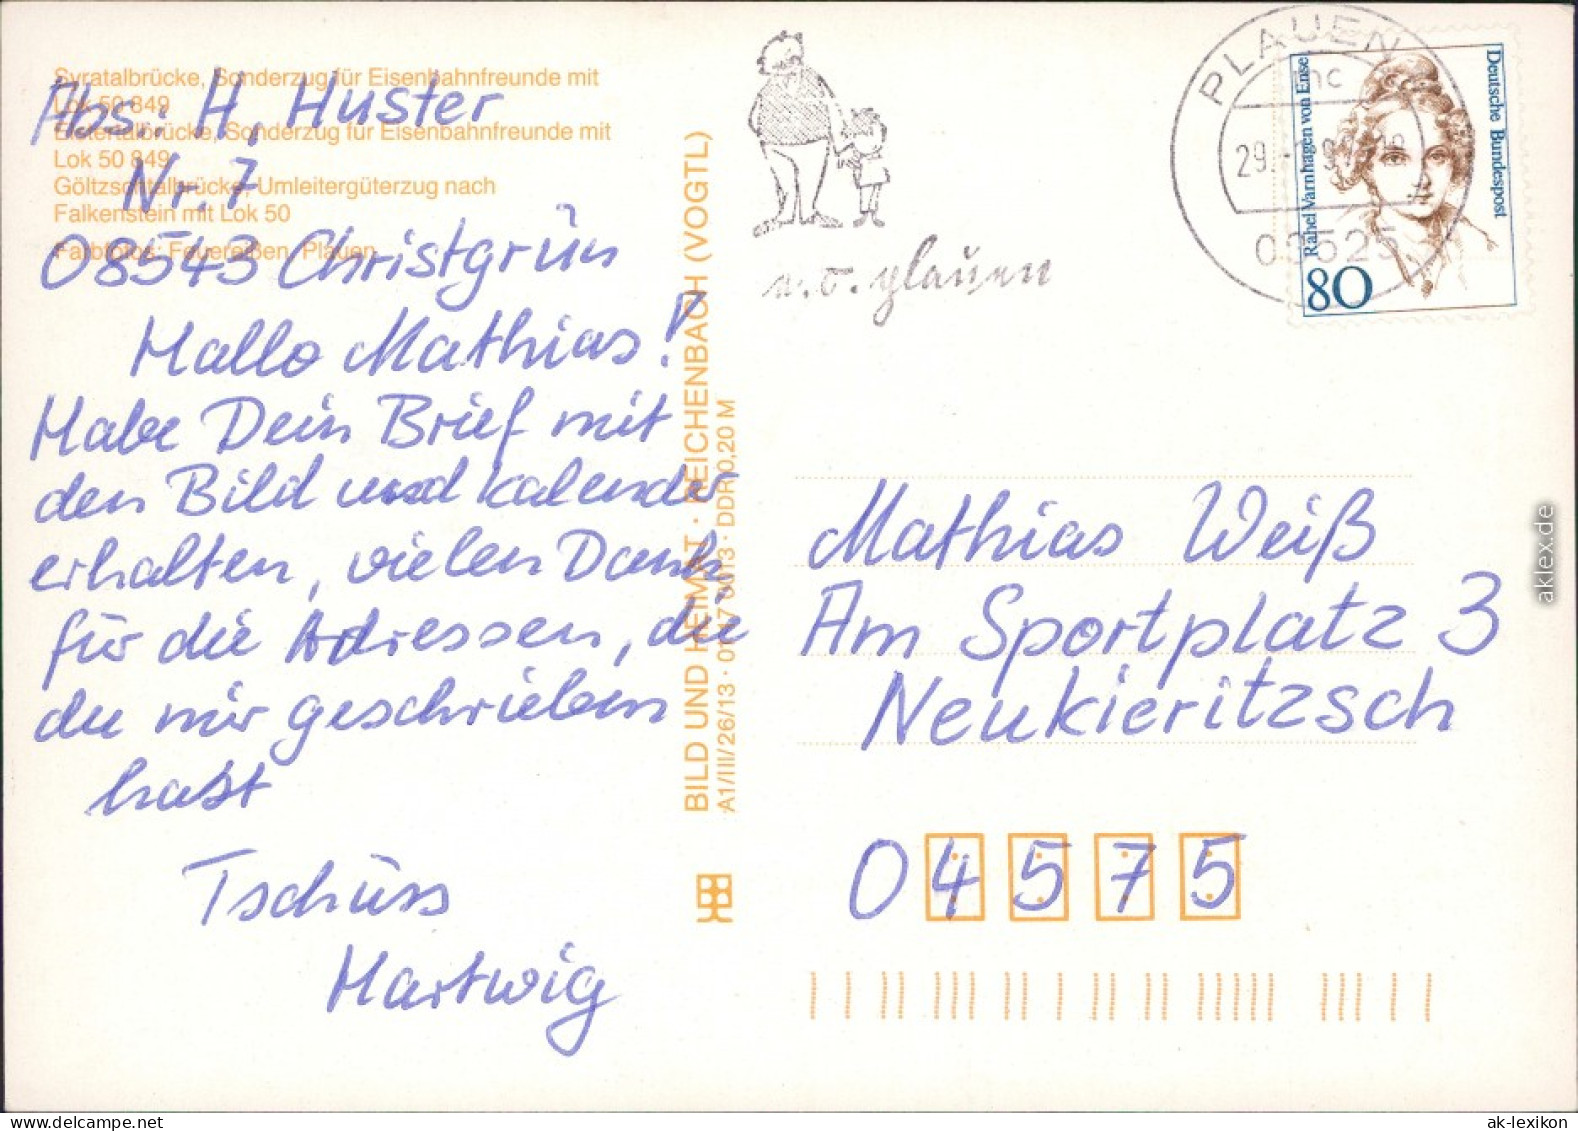 Syratalbrücke, Sonderzug für Eisenbahnfreunde mit
Lok 50 849
Elstertalbrücke, Sonderzug für Eisenbahnfreunde mit
Lok 50 849
Göltzschtalbrücke, Umleitergüterzug nach
Falkenstein mit Lok 50
Farbfotos: Feuereißen, Plauen
Abs.: H, Huster
Nr. 7
08543 Christgrün
Hallo Mathias!
Habe Dein Brief mit
den Bild und kalender
erhalten, vielen Dank
für die Adressen, die
du mir geschrieben
hast
Tschüss
Hartwig
BILD UND HEIMAT · REICHENBACH (VOGTL)
A1/III/26/13 · 01 17 0013 · DDR 0,20 M
e.o.plauen
PLAUEN
mc
29.
08525
Rahel Varnhagen von Ense
Deutsche Bundespost
80
Mathias Weiß
Am Sportplatz 3
Neukieritzsch
04575
aklex.de
ak-ansichtskarten.de
ak-lexikon